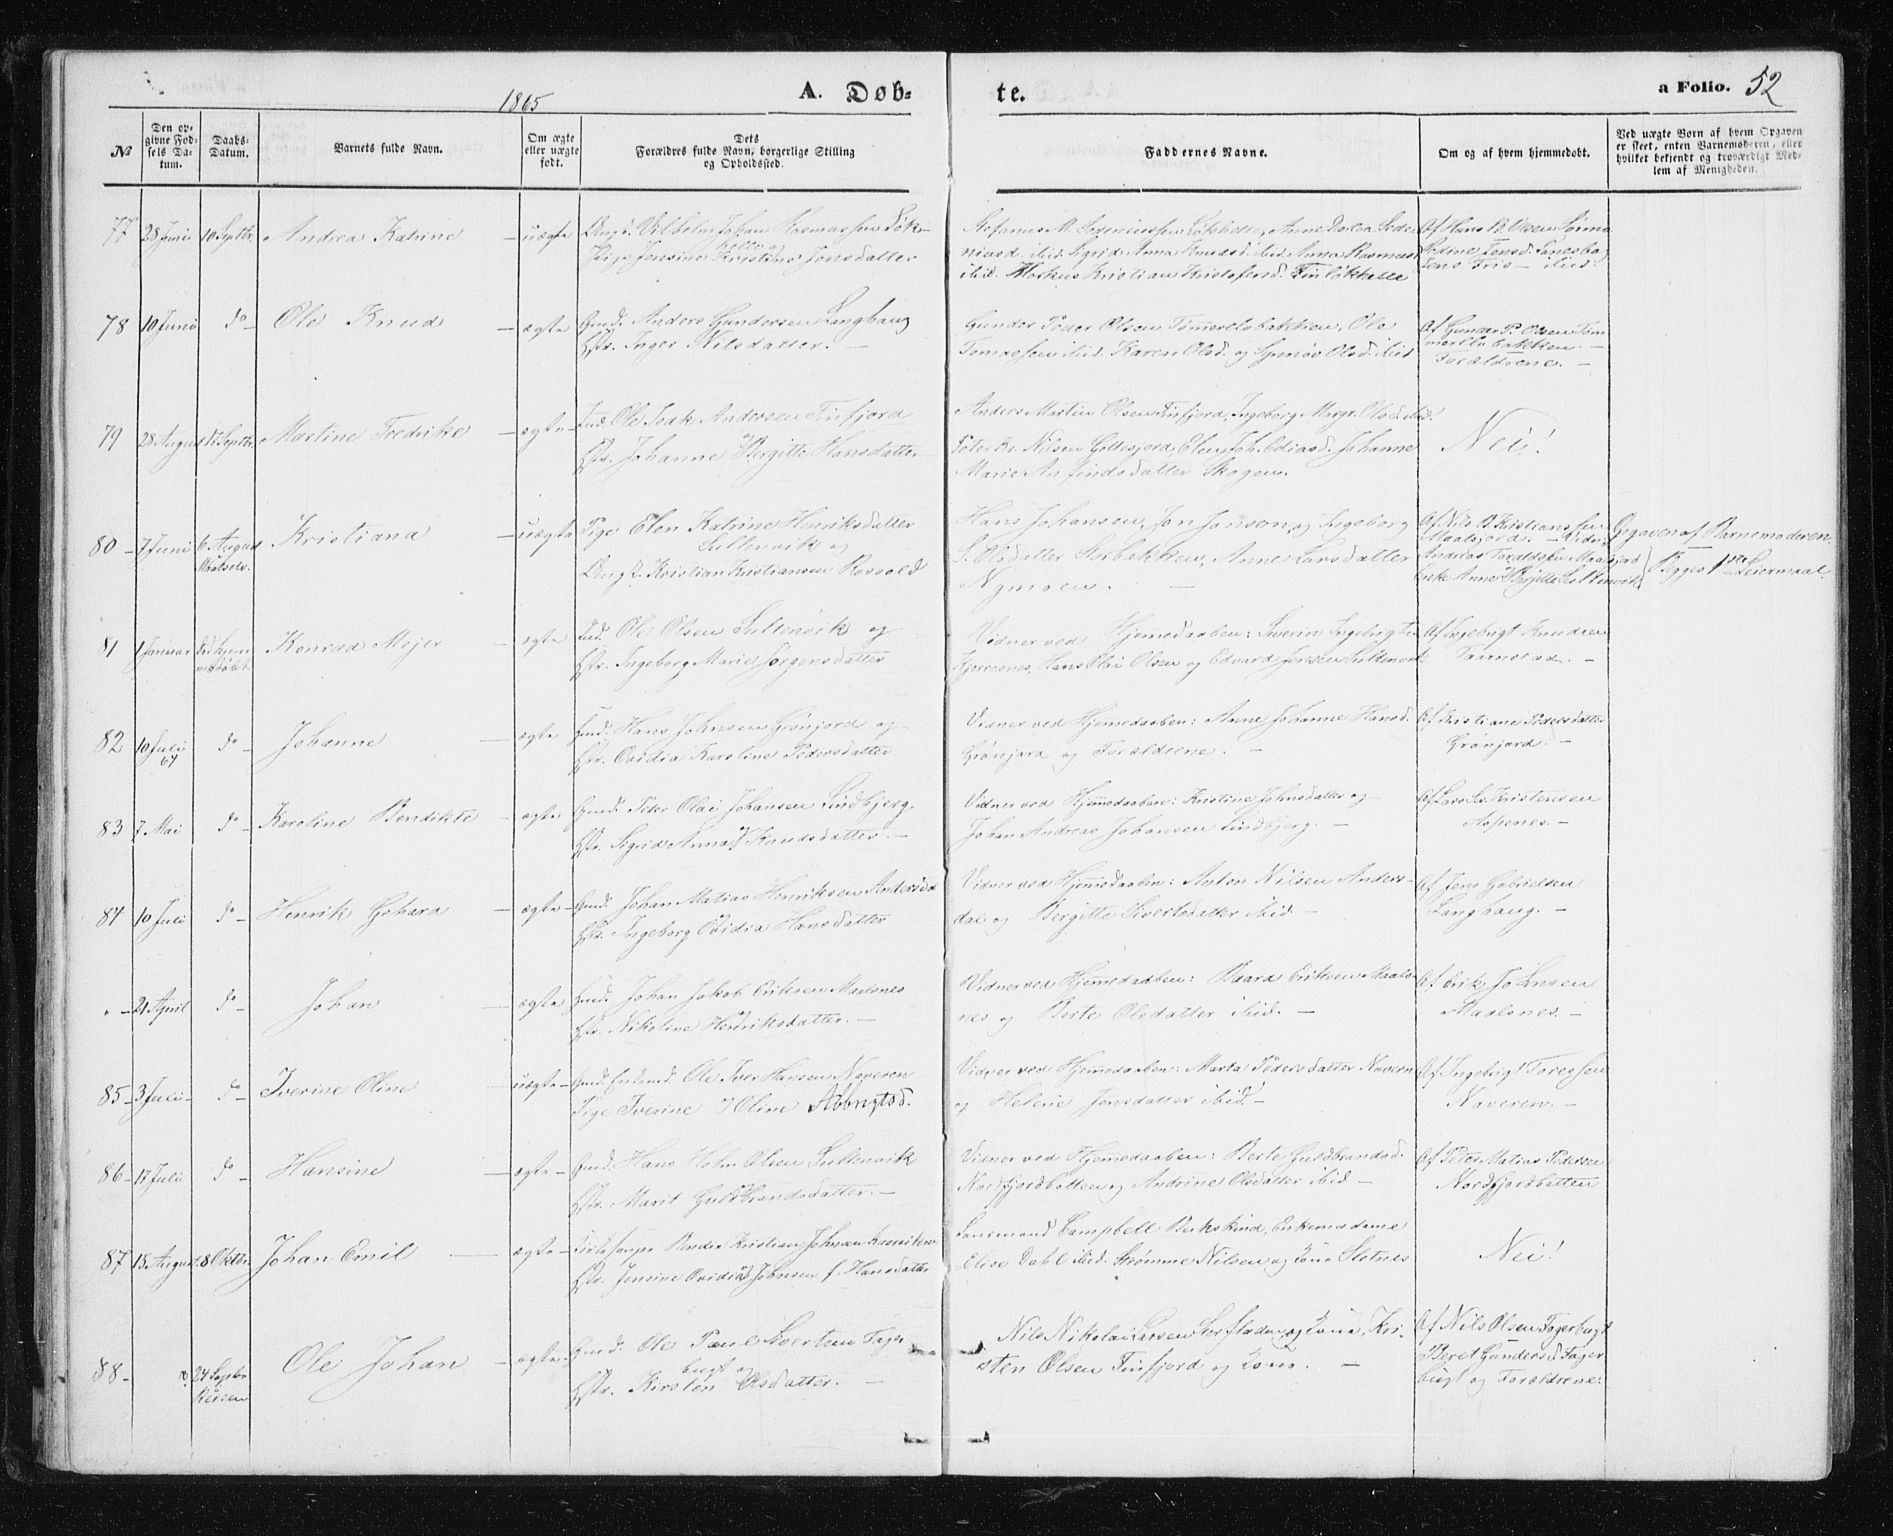 1865
A. Døb-
te.
a Folio. 52
№
Den op-
givne Fød-
sels Da-
tum.
Daabs-
Datum.
Barnets fulde Navn.
Om ægte
eller uægte
født.
Dets
Forældres fulde Navn, borgerlige Stilling
og Opholdssted.
Faddernes Navne.
Om og af hvem hjemmedøbt.
Ved uægte Børn af hvem Opgaven
er skeet, enten Barnemoderen, eller
hvilket bekjendt og troværdigt Med-
lem af Menigheden.
77 28 Juni 10 Septbr. Andrea Katrine – uægte
Ungk. Vilhelm Johan Rasmussen Løk-
kelle og
Pige Jensine Kristine Jonsdatter
ibid. Markus Kristian Kristofersd. Finløkkelle
Af Hans B. Olsen
78 10 Juni do – Ole Knud – ægte
Gmd. Anders Gundersen Langhaug
Hstr. Inger Nilsdatter. –
Gunder Peder Olsen Tømmerelvbakken, Ole
Tomassen ibid. Karen Olsd. og Synnøv Olsd. ibid
Af Gunder P. Olsen Tøm
merelvbakken. –
Forældrene. –
79 28 August 17 Septbr. Martine Fredrike – ægte
Ind. Ole Isak Andersen Finfjord
og
Hstr. Johanne Bergitte Hansdatter
Anders Martin Olsen Finfjord, Ingeborg Margr. Olsd. ibid.
Peter Kr. Nilsen Johanne
Marie Anfindsdatter Skogen.
Nei!
80 – 7 Juni 6 August Kristiana – uægte
Maalselv.
Pige Elen Katrine Henriksdatter
Sultenvik og
Ungk. Kristian Kristiansen Rossvold
Hans Johansen, Jon Jonson, og Ingeborg
S. Olsdatter Anne Larsdatter
Nymoen. –
Af Nils B. Kristiansen
Maalsjord. –
Andreas Taraldsen Maalsjord
Enke Anne Bergitte Sultenvik
Opgaven af Barnemoderen
Begges 1ste Leiermaal.
81 1 Januar Konrad Mejer – ægte
Ind. Ole Olsen Sultenvik og
Hstr. Ingeborg Marie Jørgensdatter
Vidner ved Hjemedaaben: Sverin Ingebrigts.
Hans Olai Olsen og Edvard Jensen Sultenvik
Af Ingebrigt Knudsen
Taarnstad. –
82 10 Juli 64 do – Johanne – ægte
Ind. Hans Johnsen Grønjord og
Hstr. Ovidia Karoline Pedersdatter
Vidner ved Hjemedaaben: Anne Johanne Hansd.
Grønjord og Forældrene. –
Af Kristiane Pedersdatter
Grønjord. –
83 7 Mai do – Karoline Bendikte – ægte
Gmd. Peter Olai Johansen Lindbjerg
og
Hstr. Sigrid Anna Knudsdatter. –
Vidner ved Hjemedaaben: Kristine Johnsdatter og
Johan Andreas Johansen Lindbjerg. –
Af Lars Kristensen
Aspenes. –
84 10 Juli do – Henrik Gehard – ægte
Gmd. Johan Matias Henriksen Andersdal
Hstr. Ingeborg Ovidia Hansdatter
Vidner ved Hjemedaaben: Anton Nilsen Anders-
dal og Bergitte Sivertsdatter ibid. –
Af Jens Gabrielsen
Langhaug. –
" – 21 April do – Johan – ægte
Gmd. Johan Jakob Eriksen Maalsnes
Hstr. Nikoline Henriksdatter. –
Vidner ved Hjemedaaben: Baard Eriksen Maals-
nes og Berte Olsdatter ibid. –
Af Erik Johnsen
Maalsnes. –
85 – 3 Juli – do – Iverine Oline – uægte
Gmd. Enkemd. Ole Iver Hansen Naveren
Pige Iverine Oline
Vidner ved Hjemedaaben: Marta Pedersdatter Naveren
og Helene Jensdatter ibid –
Af Ingebrigt Toressen
Naveren. –
86 – 17 Juli do – Hansine – ægte
Gmd. Hans Holm Olsen Sultenvik
Hstr. Marit Guldbrandsdatter. –
Vidner ved Hjemedaaben: Berte Guldbrandsd.
Nordfjordbotten og Andrine Olsdatter ibid –
Af Peter Matias Pedersen
Nordfjordbotten
87 15 August 8 Oktbr. Johan Emil – ægte
Kirkesanger Kristian Johnsen
Hstr. Jensine Ovidia Johnsen f. Hansdatter
Lensmand Campbell Enkemadame
Elise Dahl ibid. Strømme Nilsen og Kone Slotnes
Nei!
88 – 24 Septbr Ole Johan – ægte
Reisen
Gmd. Ole Paul Sivertsen Fager-
bugt og
Hstr. Kirsten Olsdatter. –
Nils Nikolai Larsen og Kone, Kri-
sten Olsen Finfjord og Kone. –
Af Nils Olsen Fagerbugt
Beret Gundersd. Fager
bugt og Forældrene.